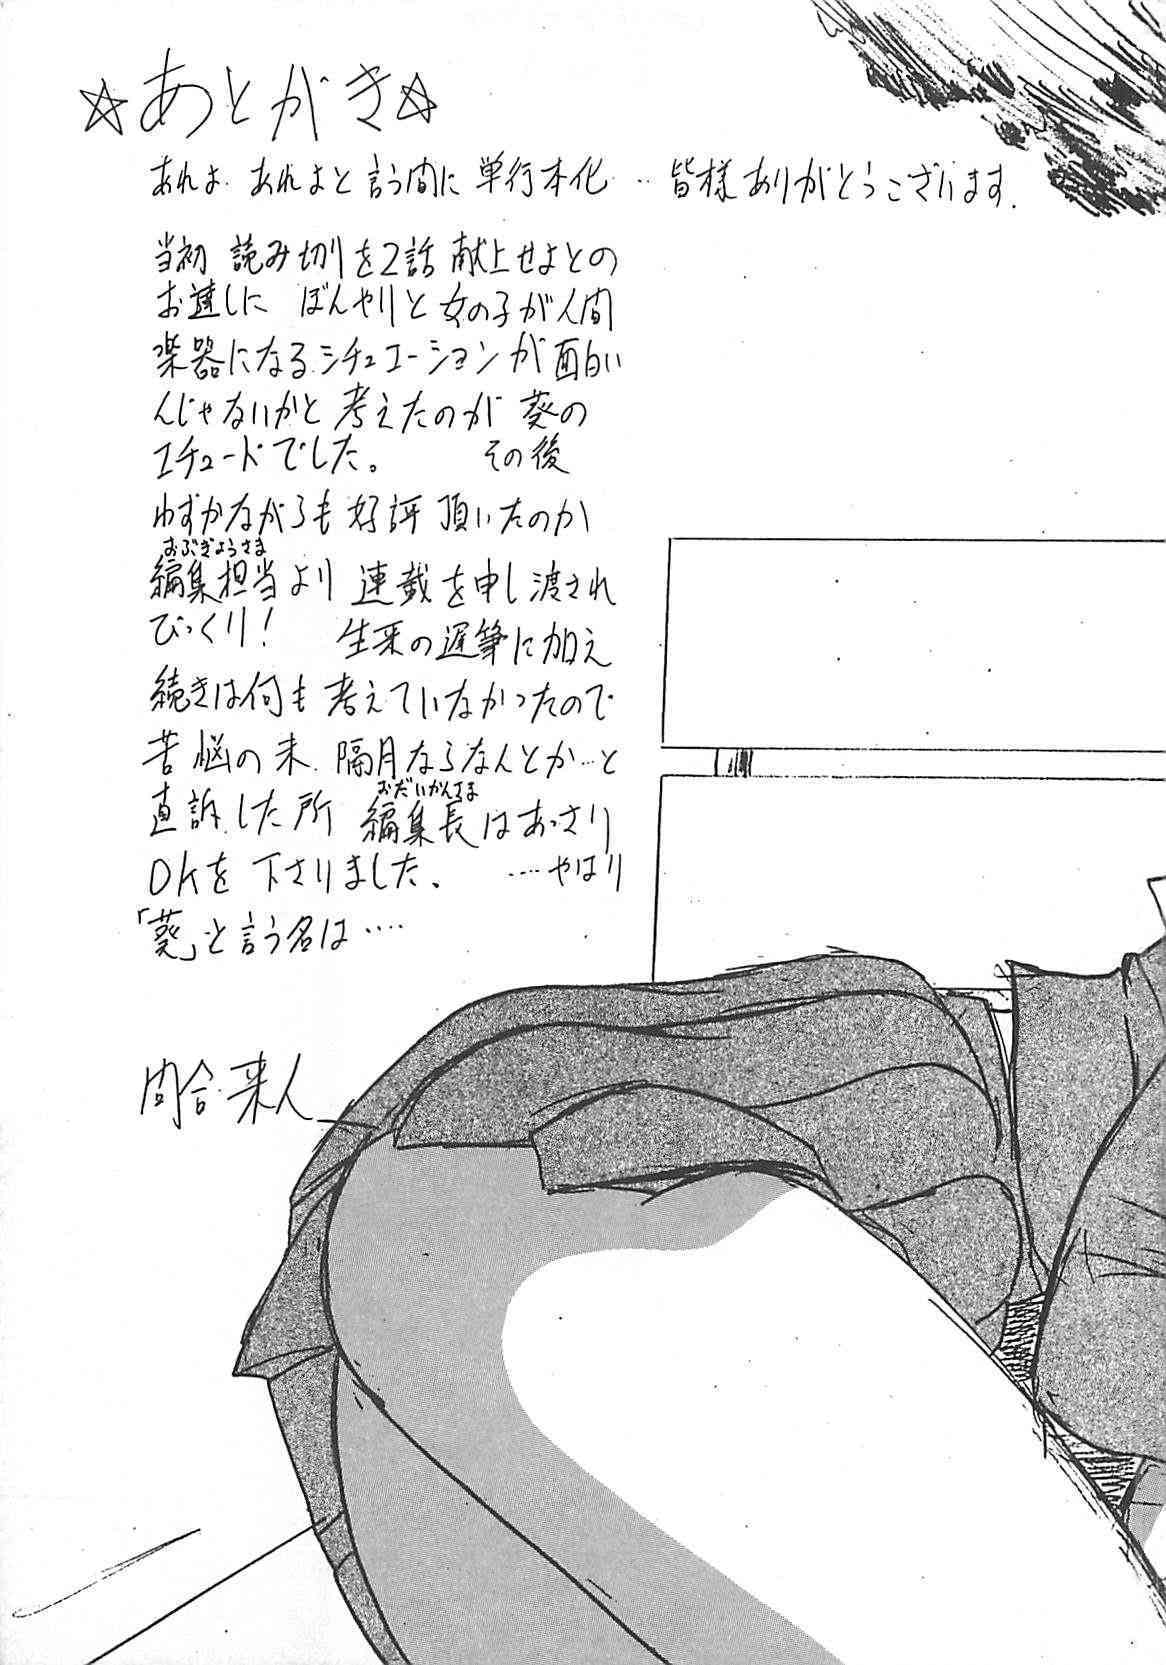 ☆あとがき☆
あれよあれよと言う間に単行本化…皆様ありがとうございます.
当初 読み切りを2話 献上せよとの
お達しに ぼんやりと女の子が人間
楽器になるシチュエーションが面白い
んじゃないかと考えたのが 葵の
エチュードでした。 その後
わずかながらも好評頂いたのか
おぶぎょうさま
編集担当より 連載を申し渡され
びっくり! 生来の遅筆に加え
続きは何も考えていなかったので
苦悩の末 隔月ならなんとか…と
おだいかんさま
直訴した所 編集長はあっさり
OKを下さりました、 ……やはり
「葵」と言う名は‥‥
間合来人